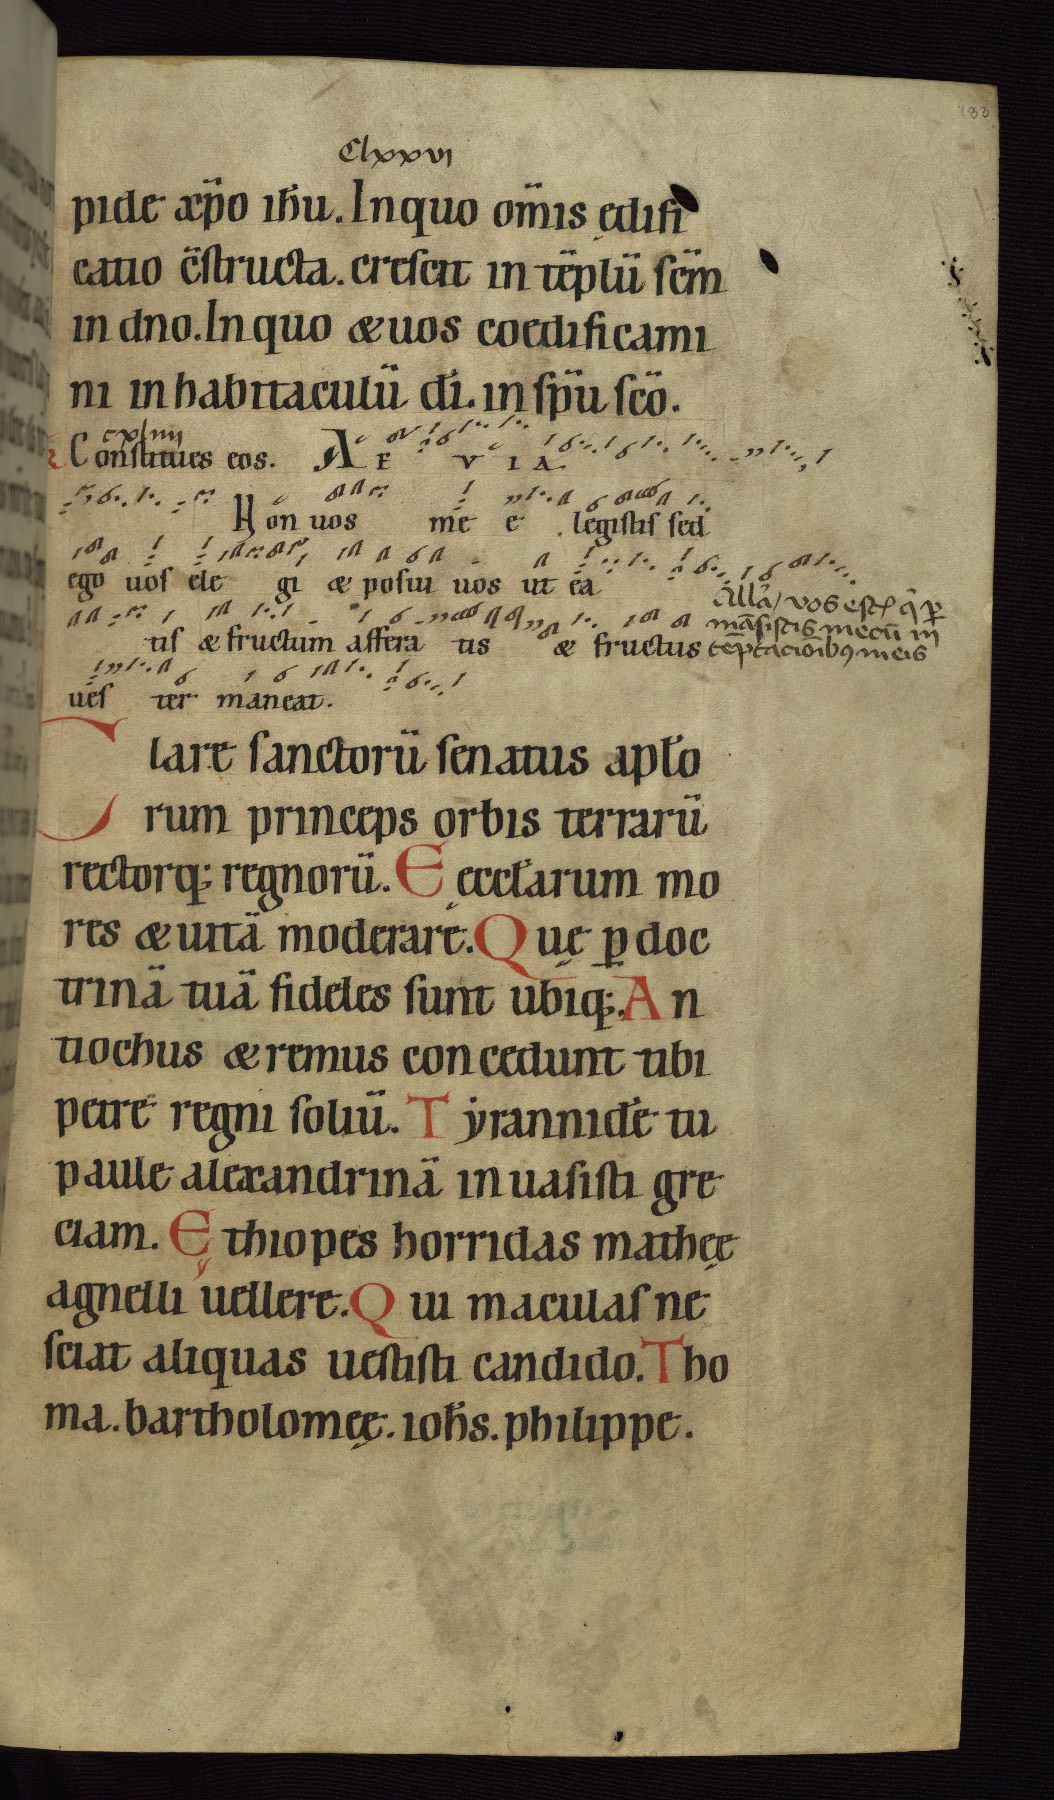 183
Clxxvi
pide xp̄o ih̄u. In quo om̄is ędifi
catio c̄structa. crescit in tēplū scm̄
in dno. In quo & uos coedificami
ni in habitaculū dī. in sp̄u scō.
cxliiii
Constitues eos. AE V IA
Non uos me e legistis sed
ego uos ele gi & posui uos ut ea
All'a / vos estꝭ q̄ ꝑ
māsistis mecū in
tēptacioībꝯ meis
tis & fructum affera tis & fructus
ues ter maneat.
Clare sanctorū senatus aplo
rum princeps orbis terrarū
rectorq; regnorū. Ęccl'arum mo
res & uitā moderare. Quę ꝑ doc
trinā tuā fideles sunt ubiq;. An
tiochus & remus concedunt tibi
petre regni soliū. Tẏrannidē tu
paule alexandrinā inuasisti gre
ciam. Ęthiopes horridas mathęe
agnelli uellere. Qui maculas ne
sciat aliquas uestisti candido. Tho
ma. bartholomęe. ioh̄s. philippe.